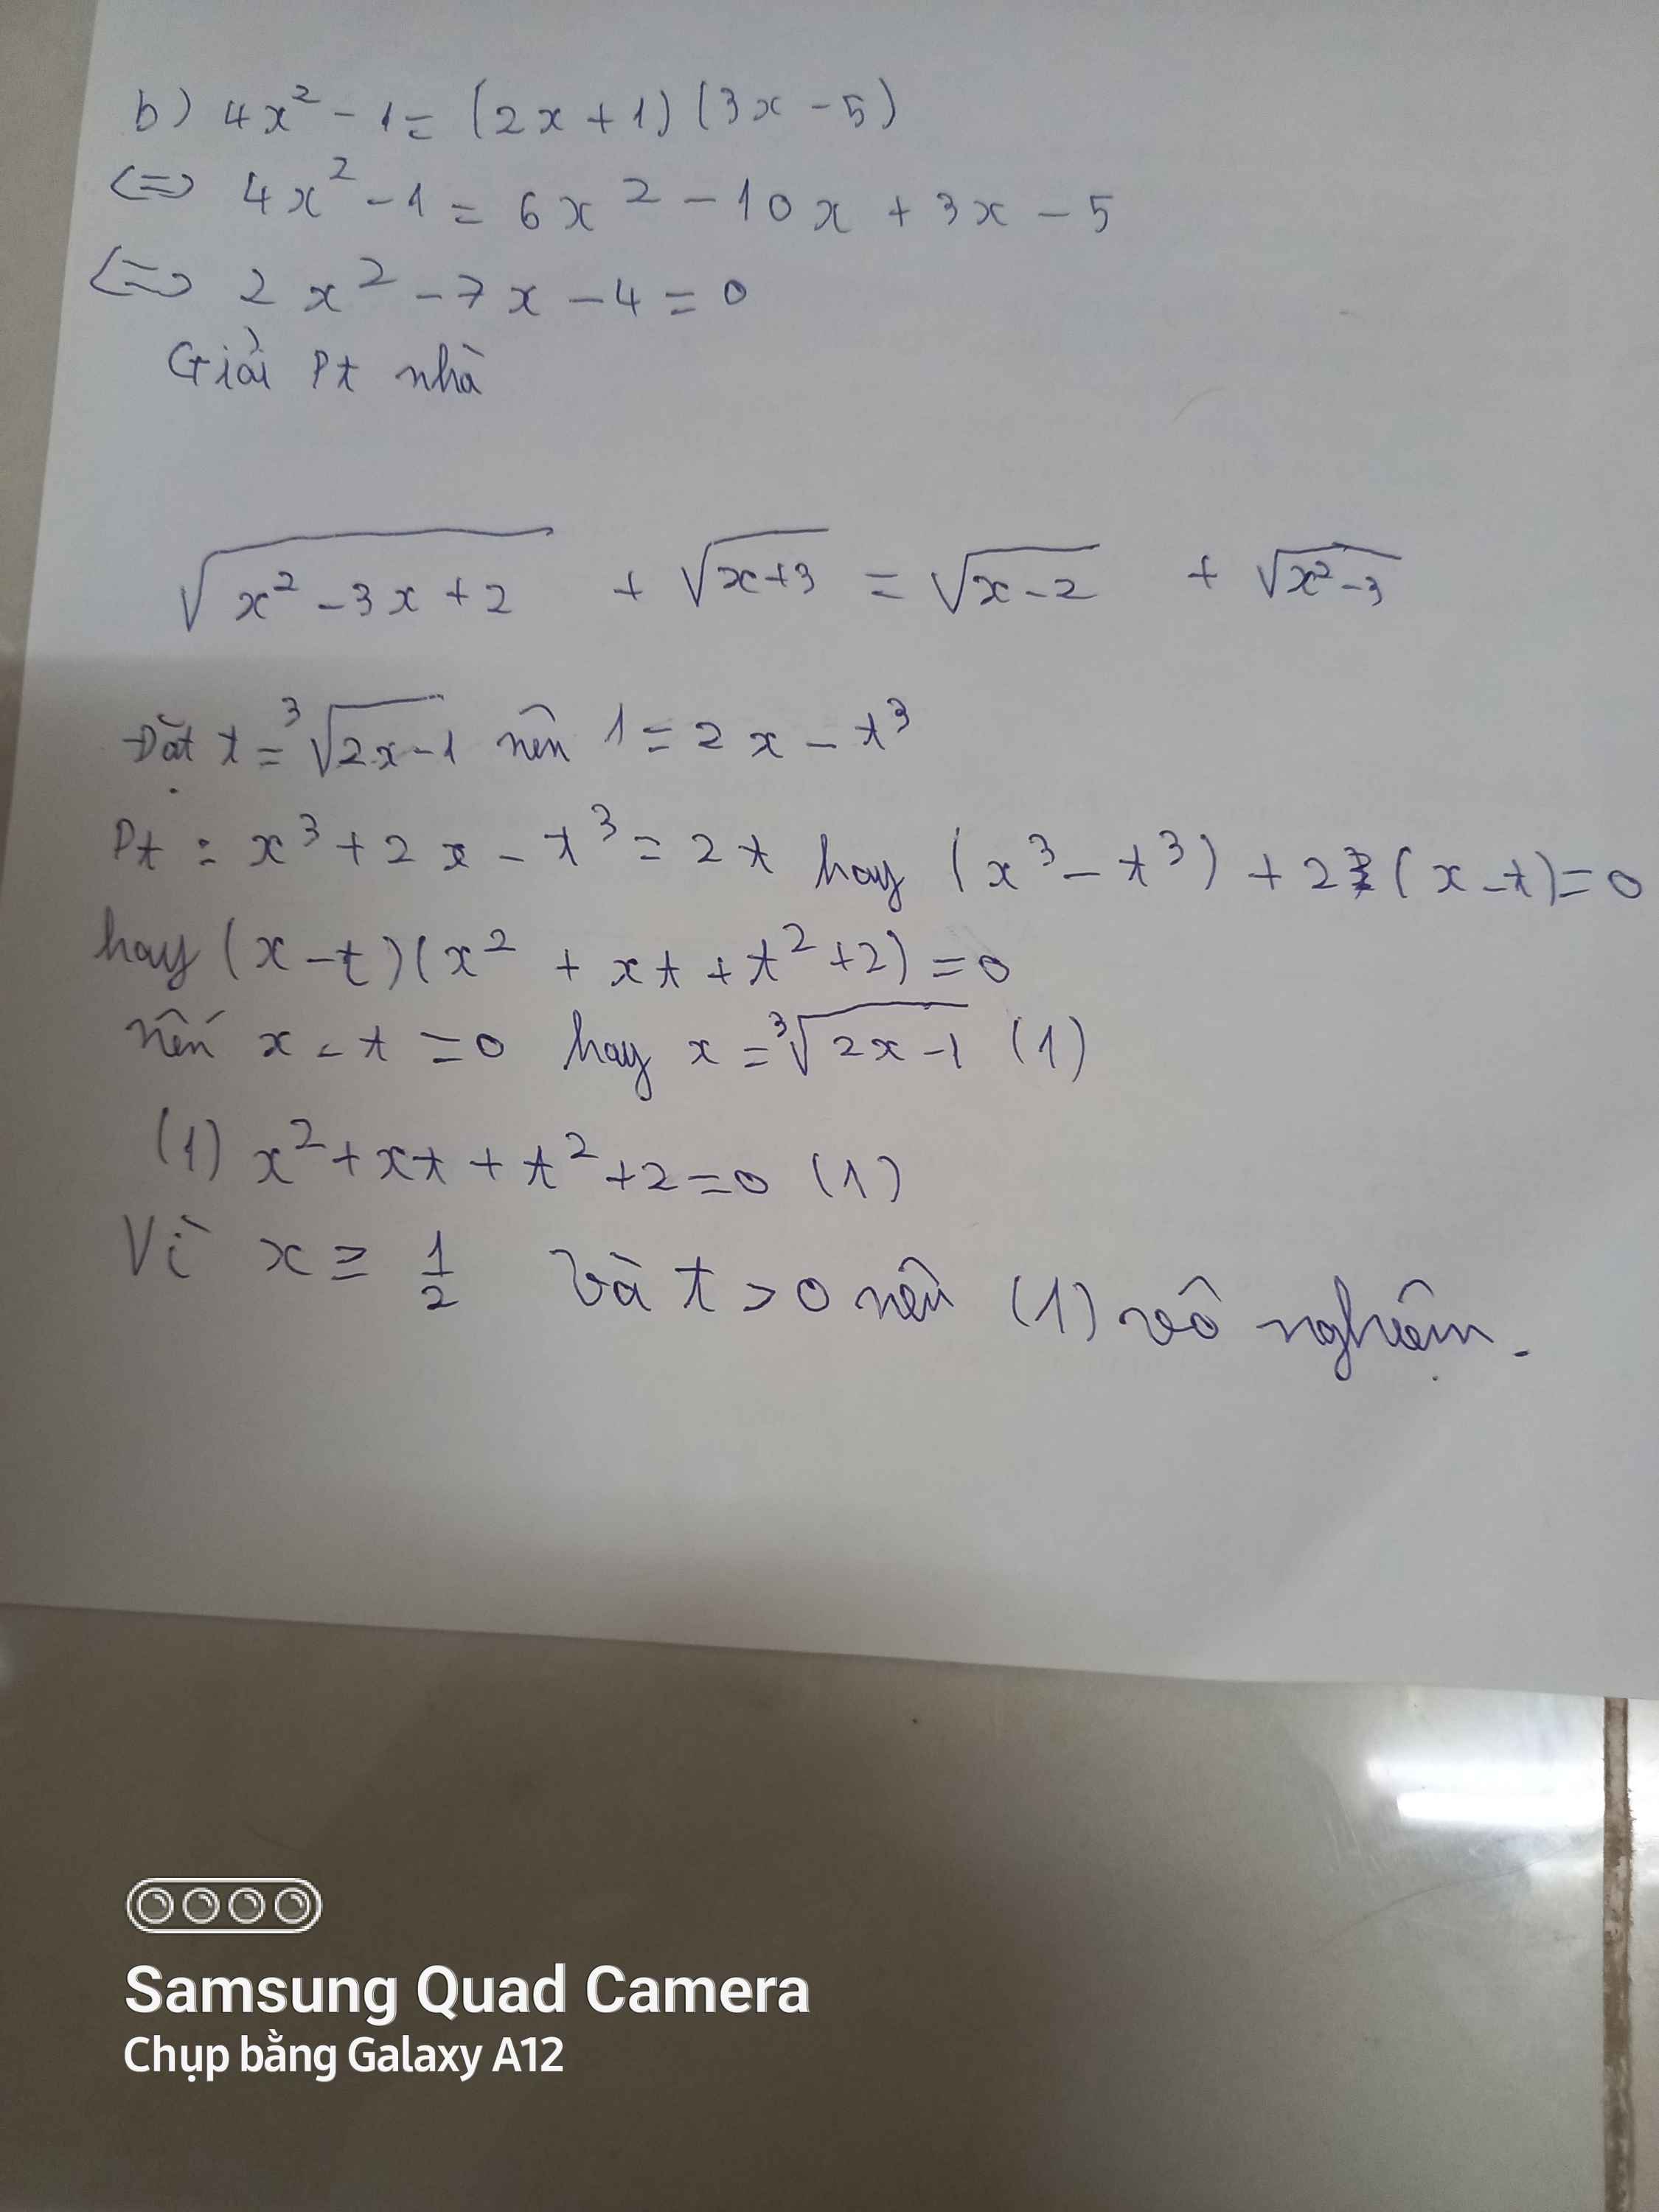 b) 4x² - 1 = (2x + 1)(3x - 5)
<=> 4x² - 1 = 6x² - 10x + 3x - 5
<=> 2x² - 7x - 4 = 0
Giải Pt nhà
√(x² - 3x + 2) + √(x+3) = √(x-2) + √(x²-3)
Đặt t = ³√(2x-1) nên 1 = 2x - t³
Pt : x³ + 2x - t³ = 2t hay (x³ - t³) + 2(x - t) = 0
hay (x - t)(x² + xt + t² + 2) = 0
nến x - t = 0 hay x = ³√(2x-1) (1)
(1) x² + xt + t² + 2 = 0 (1)
Vì x ≥ 1/2 và t > 0 nên (1) vô nghiệm.
Samsung Quad Camera
Chụp bằng Galaxy A12